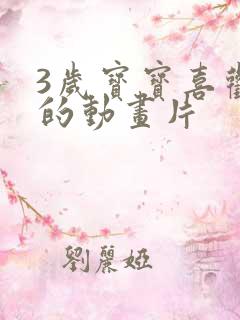 3歲寶寶喜歡
的動畫片
劉麗婭